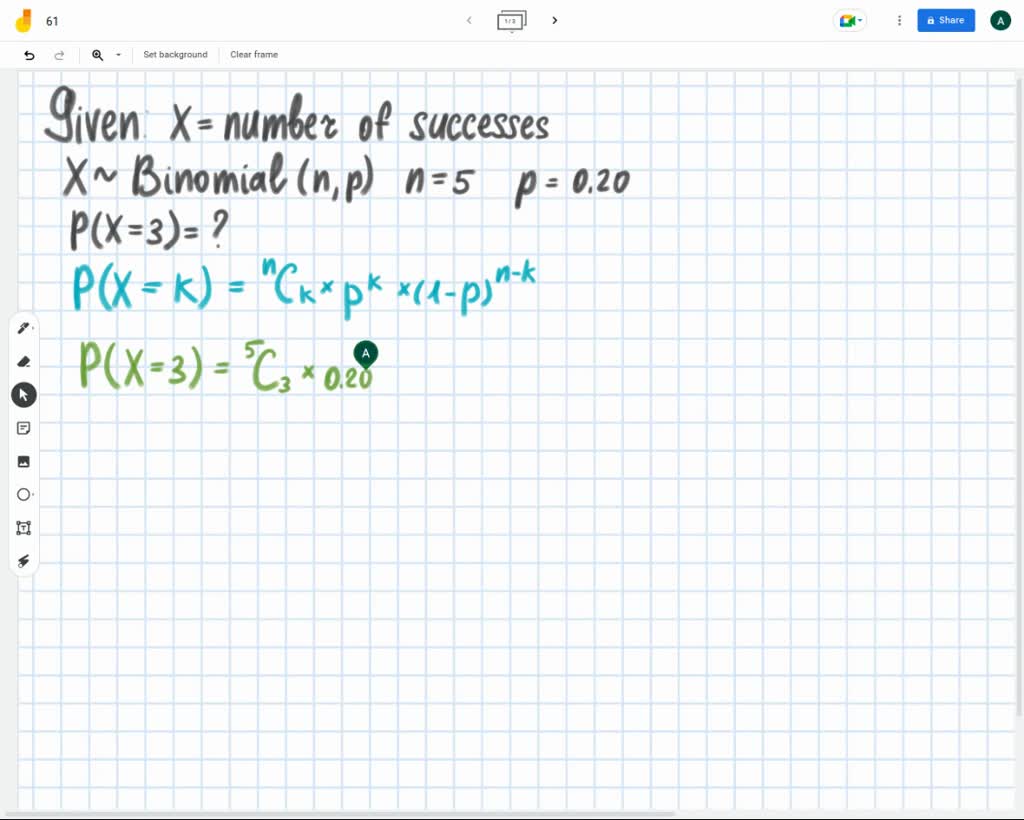 61
1/3
Share
A
Set background
Clear frame
Given: X = number of successes
X ~ Binomial (n, p) n = 5 p = 0.20
P(X=3) = ?
P(X = k) = ⁿCₖ × pᵏ × (1-p)ⁿ⁻ᵏ
P(X=3) = ⁵C₃ × 0.20
A